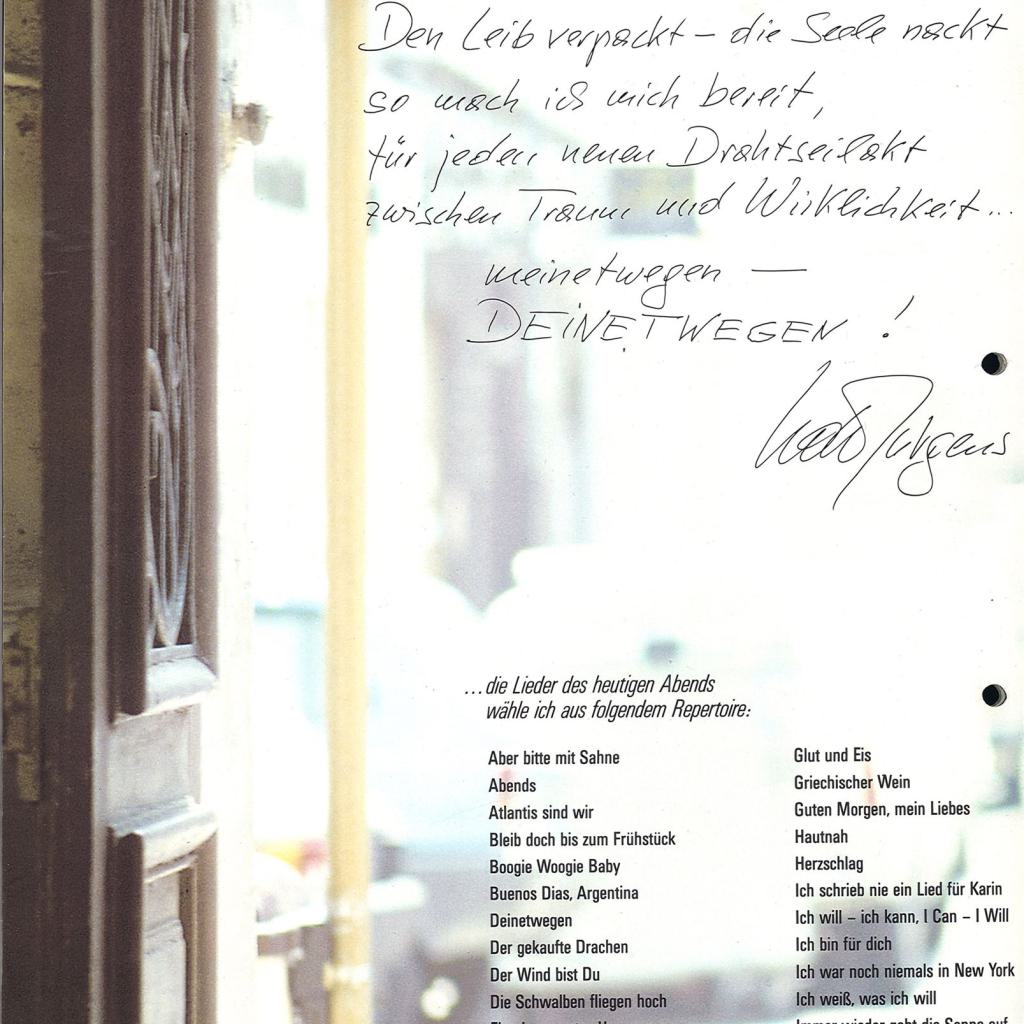 Den Leib verpackt – die Seele nackt
so mach ich mich bereit,
für jeden neuen Drahtseilakt
zwischen Traum und Wirklichkeit...
meinetwegen —
DEINETWEGEN !
Udo Jürgens
...die Lieder des heutigen Abends
wähle ich aus folgendem Repertoire:
Aber bitte mit Sahne
Abends
Atlantis sind wir
Bleib doch bis zum Frühstück
Boogie Woogie Baby
Buenos Dias, Argentina
Deinetwegen
Der gekaufte Drachen
Der Wind bist Du
Die Schwalben fliegen hoch
Glut und Eis
Griechischer Wein
Guten Morgen, mein Liebes
Hautnah
Herzschlag
Ich schrieb nie ein Lied für Karin
Ich will – ich kann, I Can – I Will
Ich bin für dich
Ich war noch niemals in New York
Ich weiß, was ich will
Immer wieder geht die Sonne auf